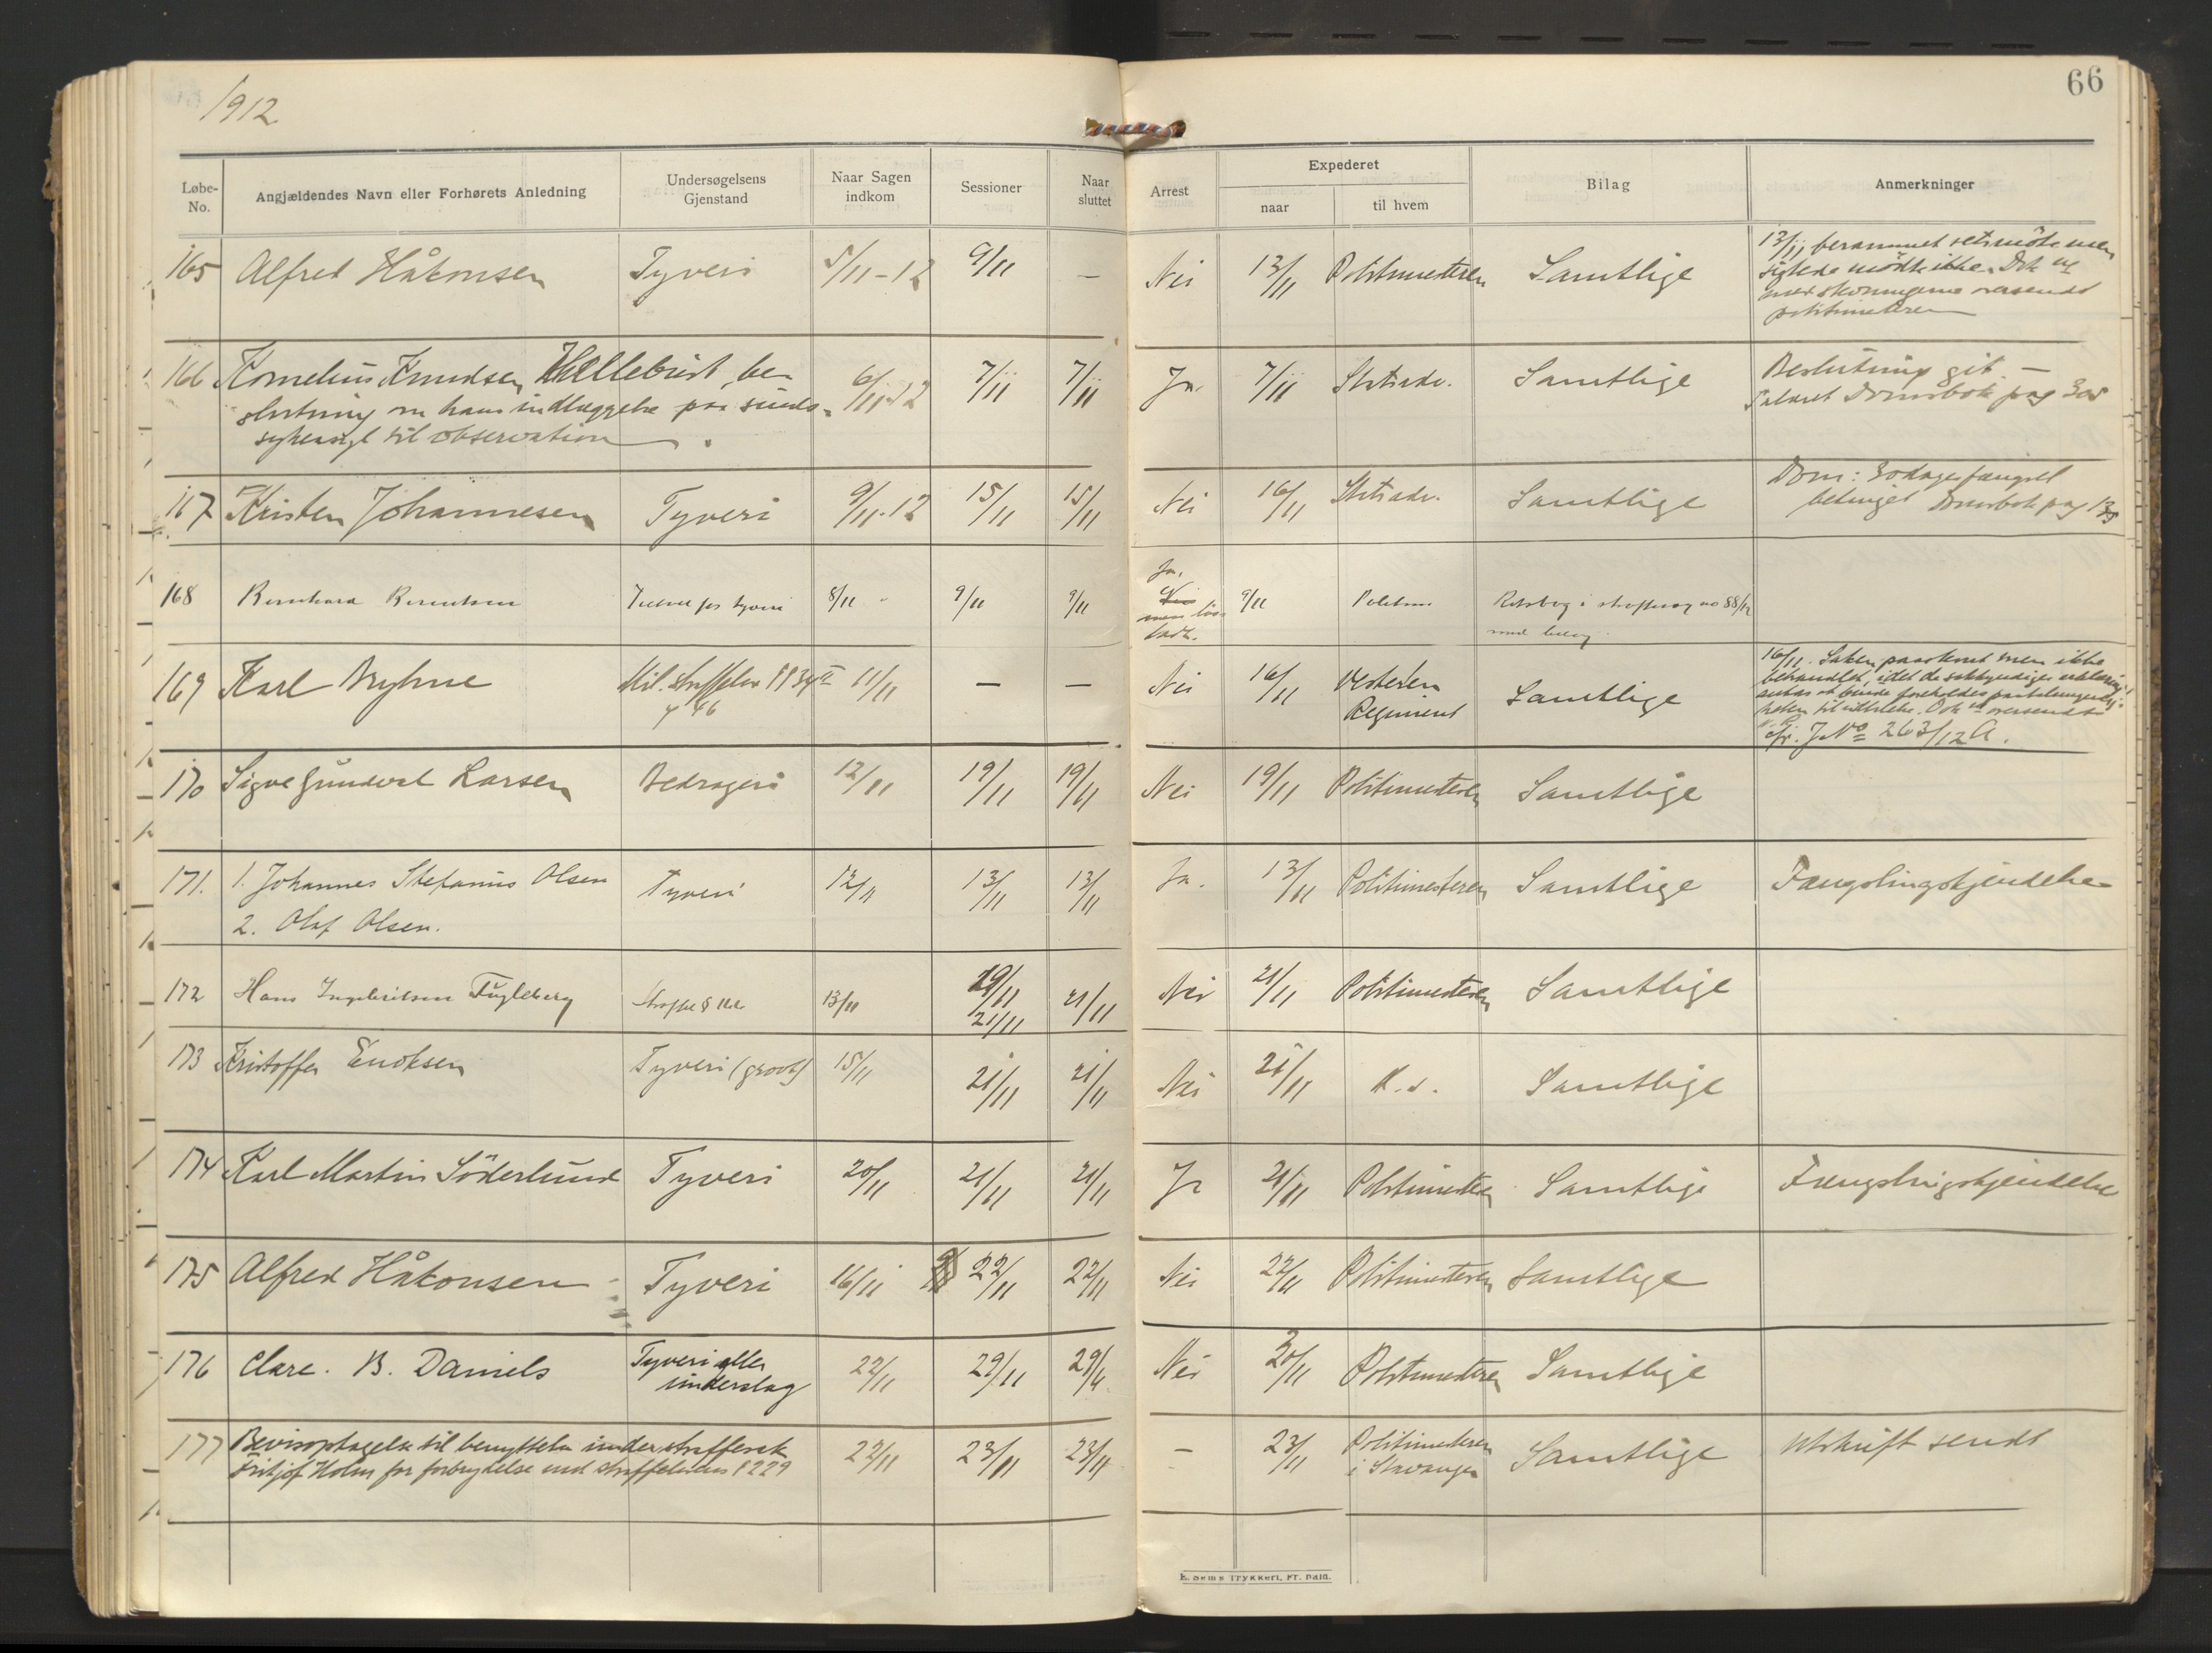 1912
66
Løbe-No. Angjældendes Navn eller Forhørets Anledning Undersøgelsens Gjenstand Naar Sagen indkom Sessioner Naar sluttet Arrest Expederet naar til hvem Bilag Anmerkninger
165 Alfred Håkonsen Tyveri 5/11-12 9/11 — Nei 13/11 Politimesteren Samtlige 13/11 berammet retsmöte men
sigtede mödte ikke. Dok
oversendt
politimesteren
166 Kornelius Knudsen Hellebust, be- 6/11-12 7/11 7/11 Ja. 7/11 Statsadv. Samtlige Beslutning git. —
slutning om hans indlæggelse paa sinds-
sykeasyl til observation
Domsbok pag 305
167 Kristen Johannesen Tyveri 9/11-12 15/11 15/11 Nei 16/11 Statsadv. Samtlige Dom: 30 dages fængsel
betinget Domsbok pag
168 Bernhard Berentsen for tyveri 8/11 9/11 9/11 Ja. Nei 9/11 Politim Retsbog i straffesag no 88/12
med bilag.
169 Karl Bryhne Mil. straffelov §§ 34 II 11/11 — — Nei 16/11 Vesteren Samtlige 16/11. Saken men ikke
46 Regiment behandlet, idet de sakkyndiges erklæring
oversendt
J. No 263/12 A.
170 Sigve Gundval Larsen Bedrageri 12/11 19/11 19/11 Nei 19/11 Politimesteren Samtlige
171. 1. Johannes Stefanus Olsen Tyveri 12/11 13/11 13/11 Ja. 13/11 Politimesteren Samtlige Fængslingskjendelse
2. Olaf Olsen.
172 Hans Ingebritsen Fugleberg 13/11 19/11 21/11 Nei 21/11 Politimesteren Samtlige
21/11
173 Kristoffer Enoksen Tyveri (grovt) 15/11 21/11 21/11 Nei 21/11 K.s. Samtlige
174 Karl Martin Söderlund Tyveri 20/11 21/11 21/11 Ja 21/11 Politimesteren Samtlige Fængslingskjendelse
175 Alfred Håkonsen Tyveri 16/11 22/11 22/11 Nei 22/11 Politimesteren Samtlige
176 Clare. B. Daniels Tyveri eller 22/11 29/11 29/11 Nei Politimesteren Samtlige
underslag
177 Bevisoptagelse til benyttelse under straffesak 22/11 23/11 23/11 — 23/11 Politimesteren Samtlige Utskrift sendt
Fritjof Holm for forbrydelse mod straffelovens § 229 i Stavanger
E. Sems Trykkeri, Fr. Hald.